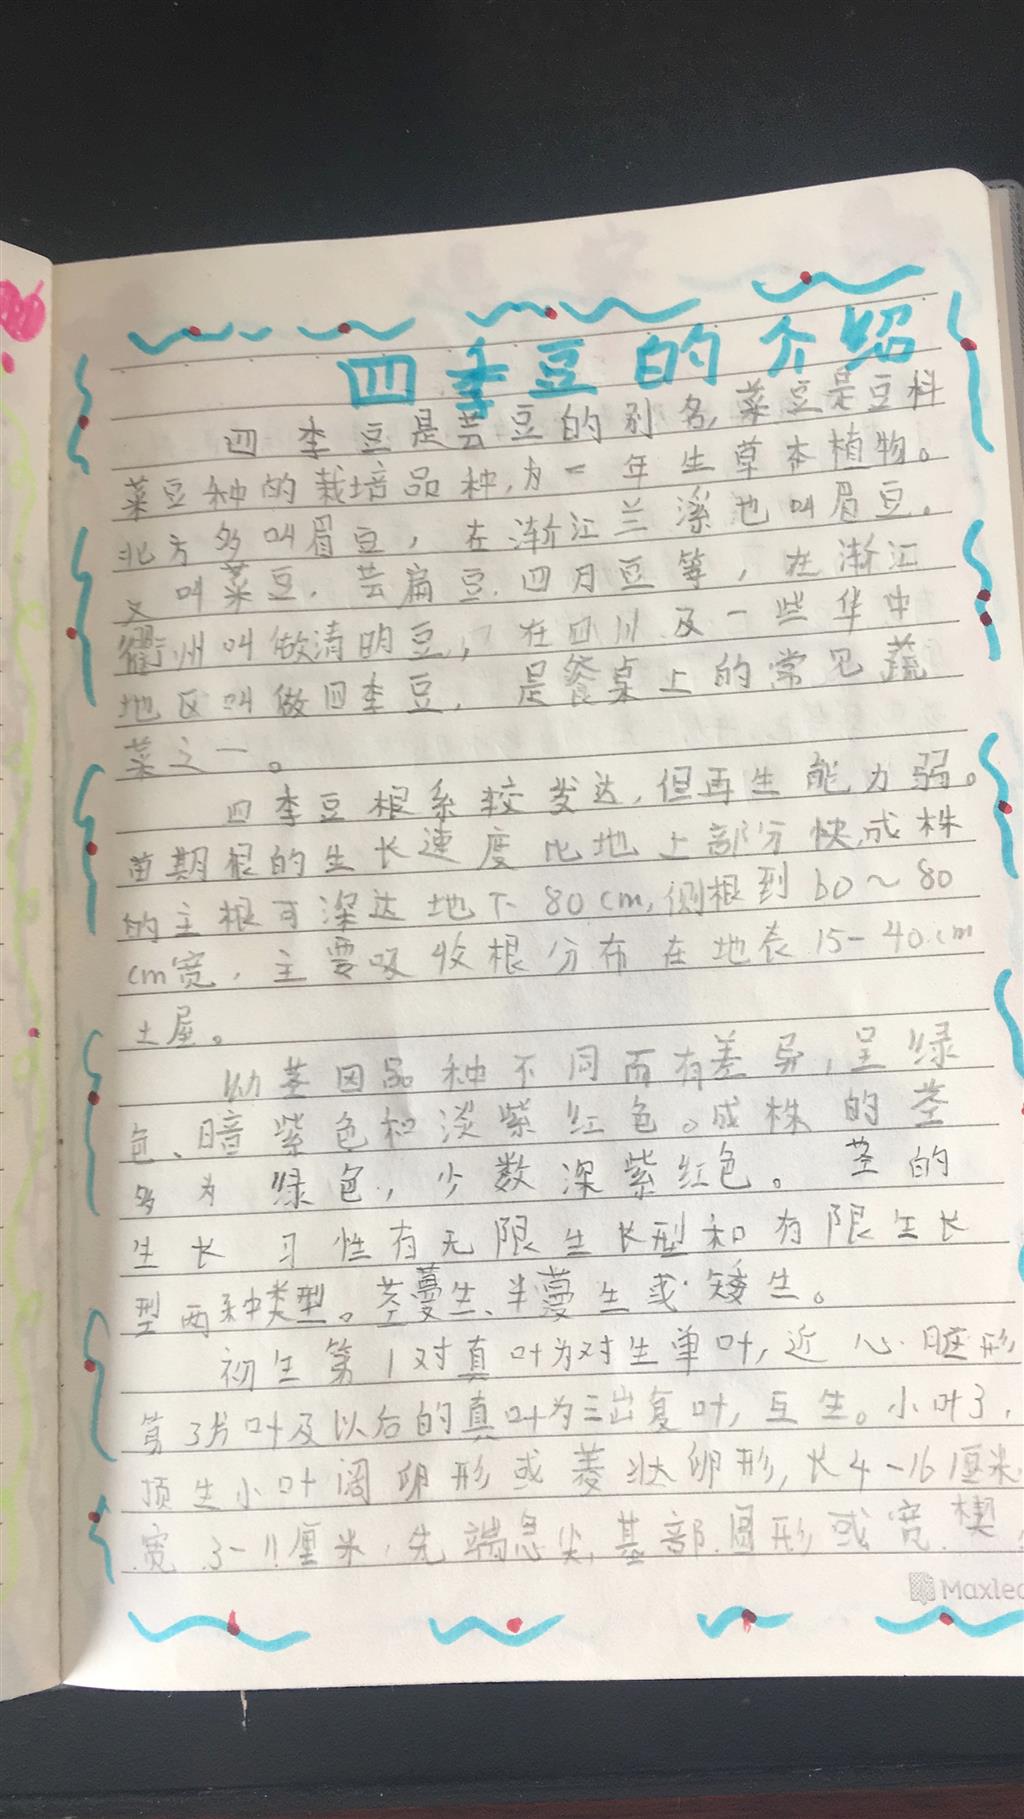 四季豆的介绍
四季豆是芸豆的别名,菜豆是豆科
菜豆种的栽培品种,为一年生草本植物。
北方多叫眉豆，在浙江兰溪也叫眉豆。
又叫菜豆，芸扁豆，四月豆等，在浙江
衢州叫做清明豆，在四川及一些华中
地区叫做四季豆，是餐桌上的常见蔬
菜之一。
四季豆根系较发达,但再生能力弱。
苗期根的生长速度比地上部分快,成株
的主根可深达地下80cm,侧根到60～80
cm宽，主要吸收根分布在地表15-40cm
土层。
幼茎因品种不同而有差异,呈绿
色、暗紫色和淡紫红色。成株的茎
多为绿色，少数深紫红色。茎的
生长习性有无限生长型和有限生长
型两种类型。茎蔓生、半蔓生或矮生。
初生第1对真叶为对生单叶,近心脏形
第3片叶及以后的真叶为三出复叶,互生。小叶3，
顶生小叶阔卵形或菱状卵形,长4-16厘米
宽3-11厘米，先端急尖,基部圆形或宽楔
Maxleo